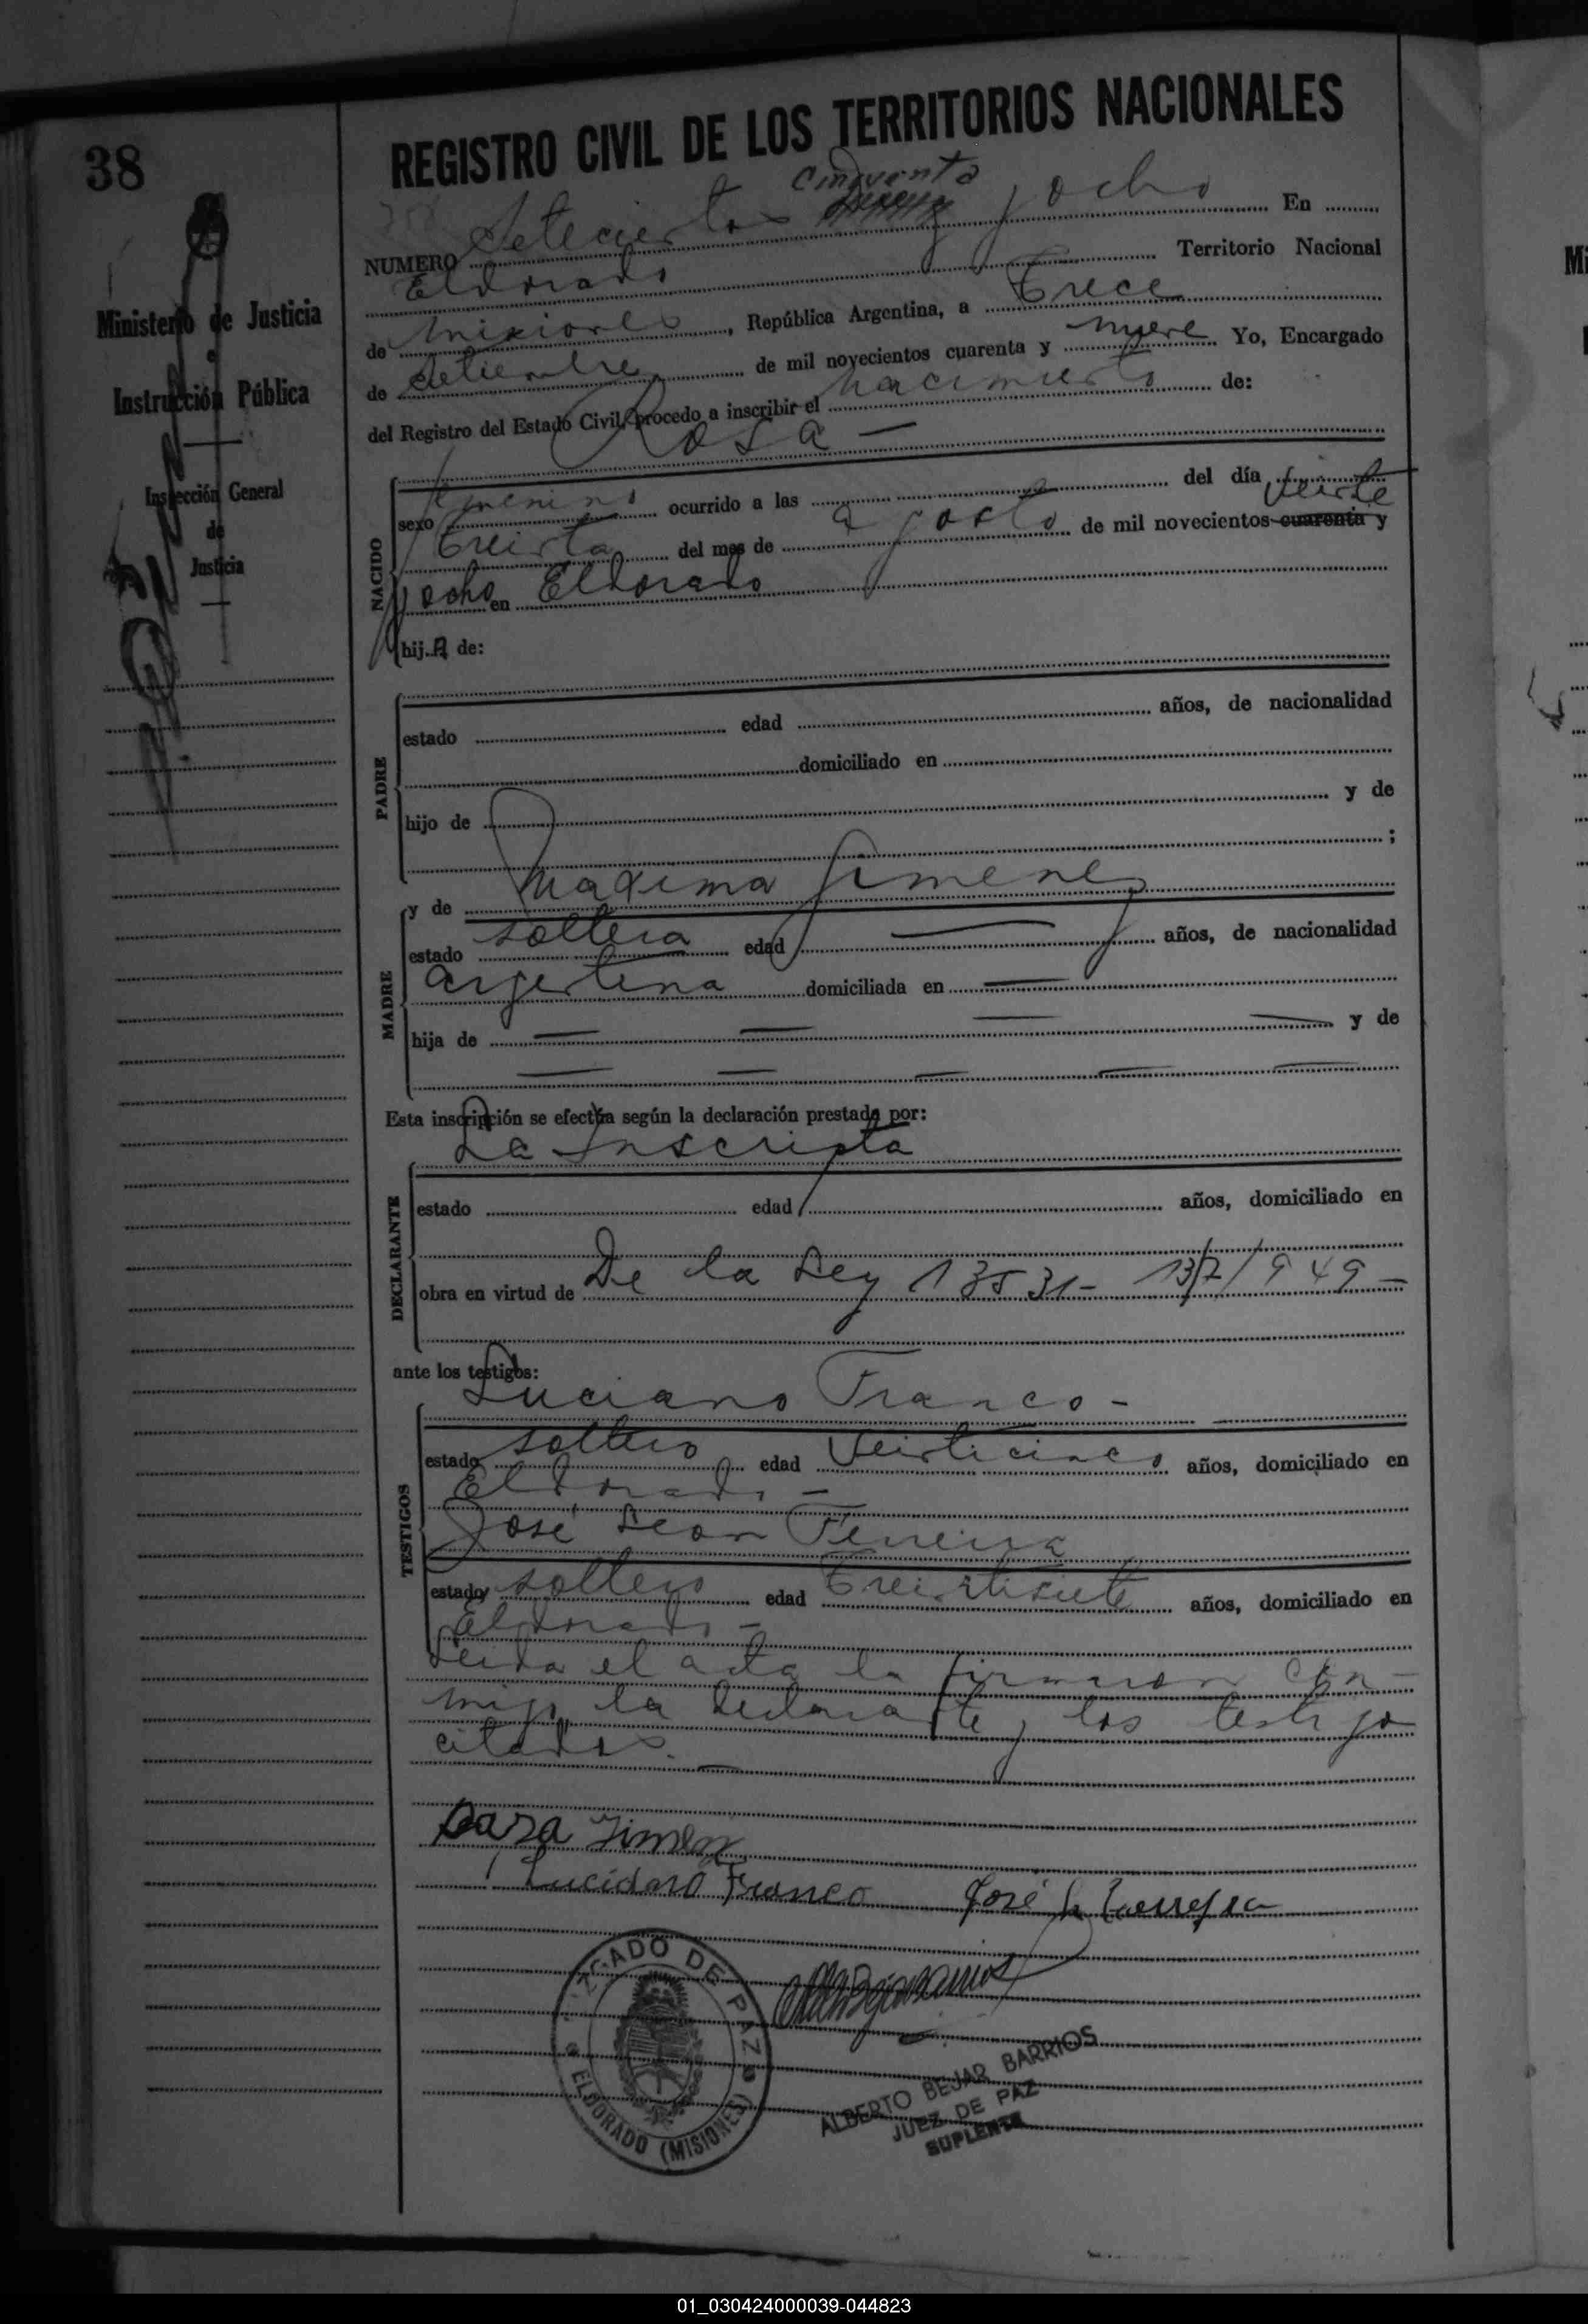 38
REGISTRO CIVIL DE LOS TERRITORIOS NACIONALES
cinquenta
NUMERO Setecientos y ocho En
Eldorado Territorio Nacional
de Misiones, República Argentina, a trece
de setiembre de mil novecientos cuarenta y nueve Yo, Encargado
del Registro del Estado Civil, procedo a inscribir el nacimiento de:
Rosa —
Ministerio de Justicia
e
Instrucción Pública
Inspección General
de
Justicia
NACIDO
sexo femenino ocurrido a las del día veinte
treinta del mes de agosto de mil novecientos cuarenta y
y ocho en Eldorado
hij.A de:
PADRE
estado edad años, de nacionalidad
domiciliado en
hijo de y de
;
MADRE
y de Maxima Jimenez
estado soltera edad — años, de nacionalidad
argentina domiciliada en —
hija de — — — — y de
— — — — —
Esta inscripción se efectúa según la declaración prestada por:
La Inscripta
DECLARANTE
estado edad años, domiciliado en
obra en virtud de De la Ley 13531- 13/7/949 —
ante los testigos:
Luciano Franco -
TESTIGOS
estado soltero edad Veinticinco años, domiciliado en
Eldorado —
José Leon Ferreira
estado soltero edad treintisiete años, domiciliado en
Eldorado —
Leida el acta la firmaron con-
migo la declarante y los testigo
citados. —
Jimenz
Luciano Franco José L Ferreira
JUZGADO DE PAZ
ELDORADO (MISIONES)
ALBERTO BEJAR BARRIOS
JUEZ DE PAZ
SUPLENTE
Mi
01_030424000039-044823